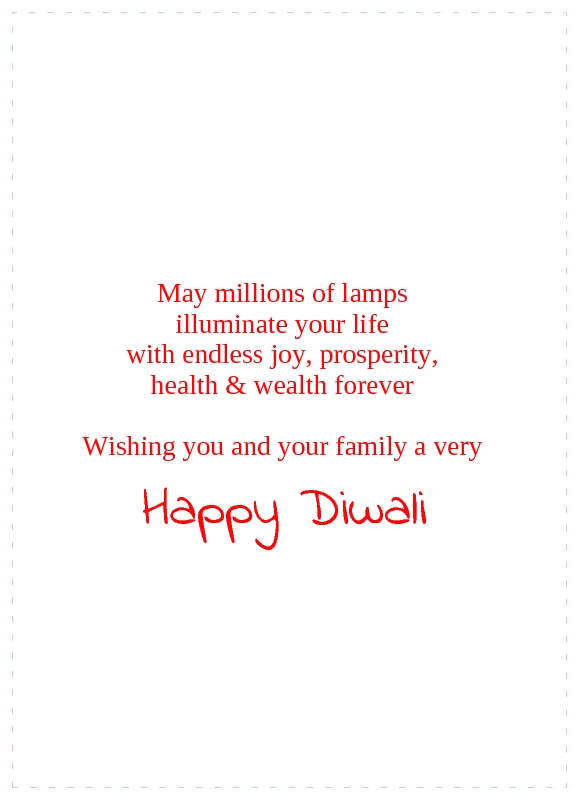 May millions of lamps
illuminate your life
with endless joy, prosperity,
health & wealth forever
Wishing you and your family a very
Happy Diwali